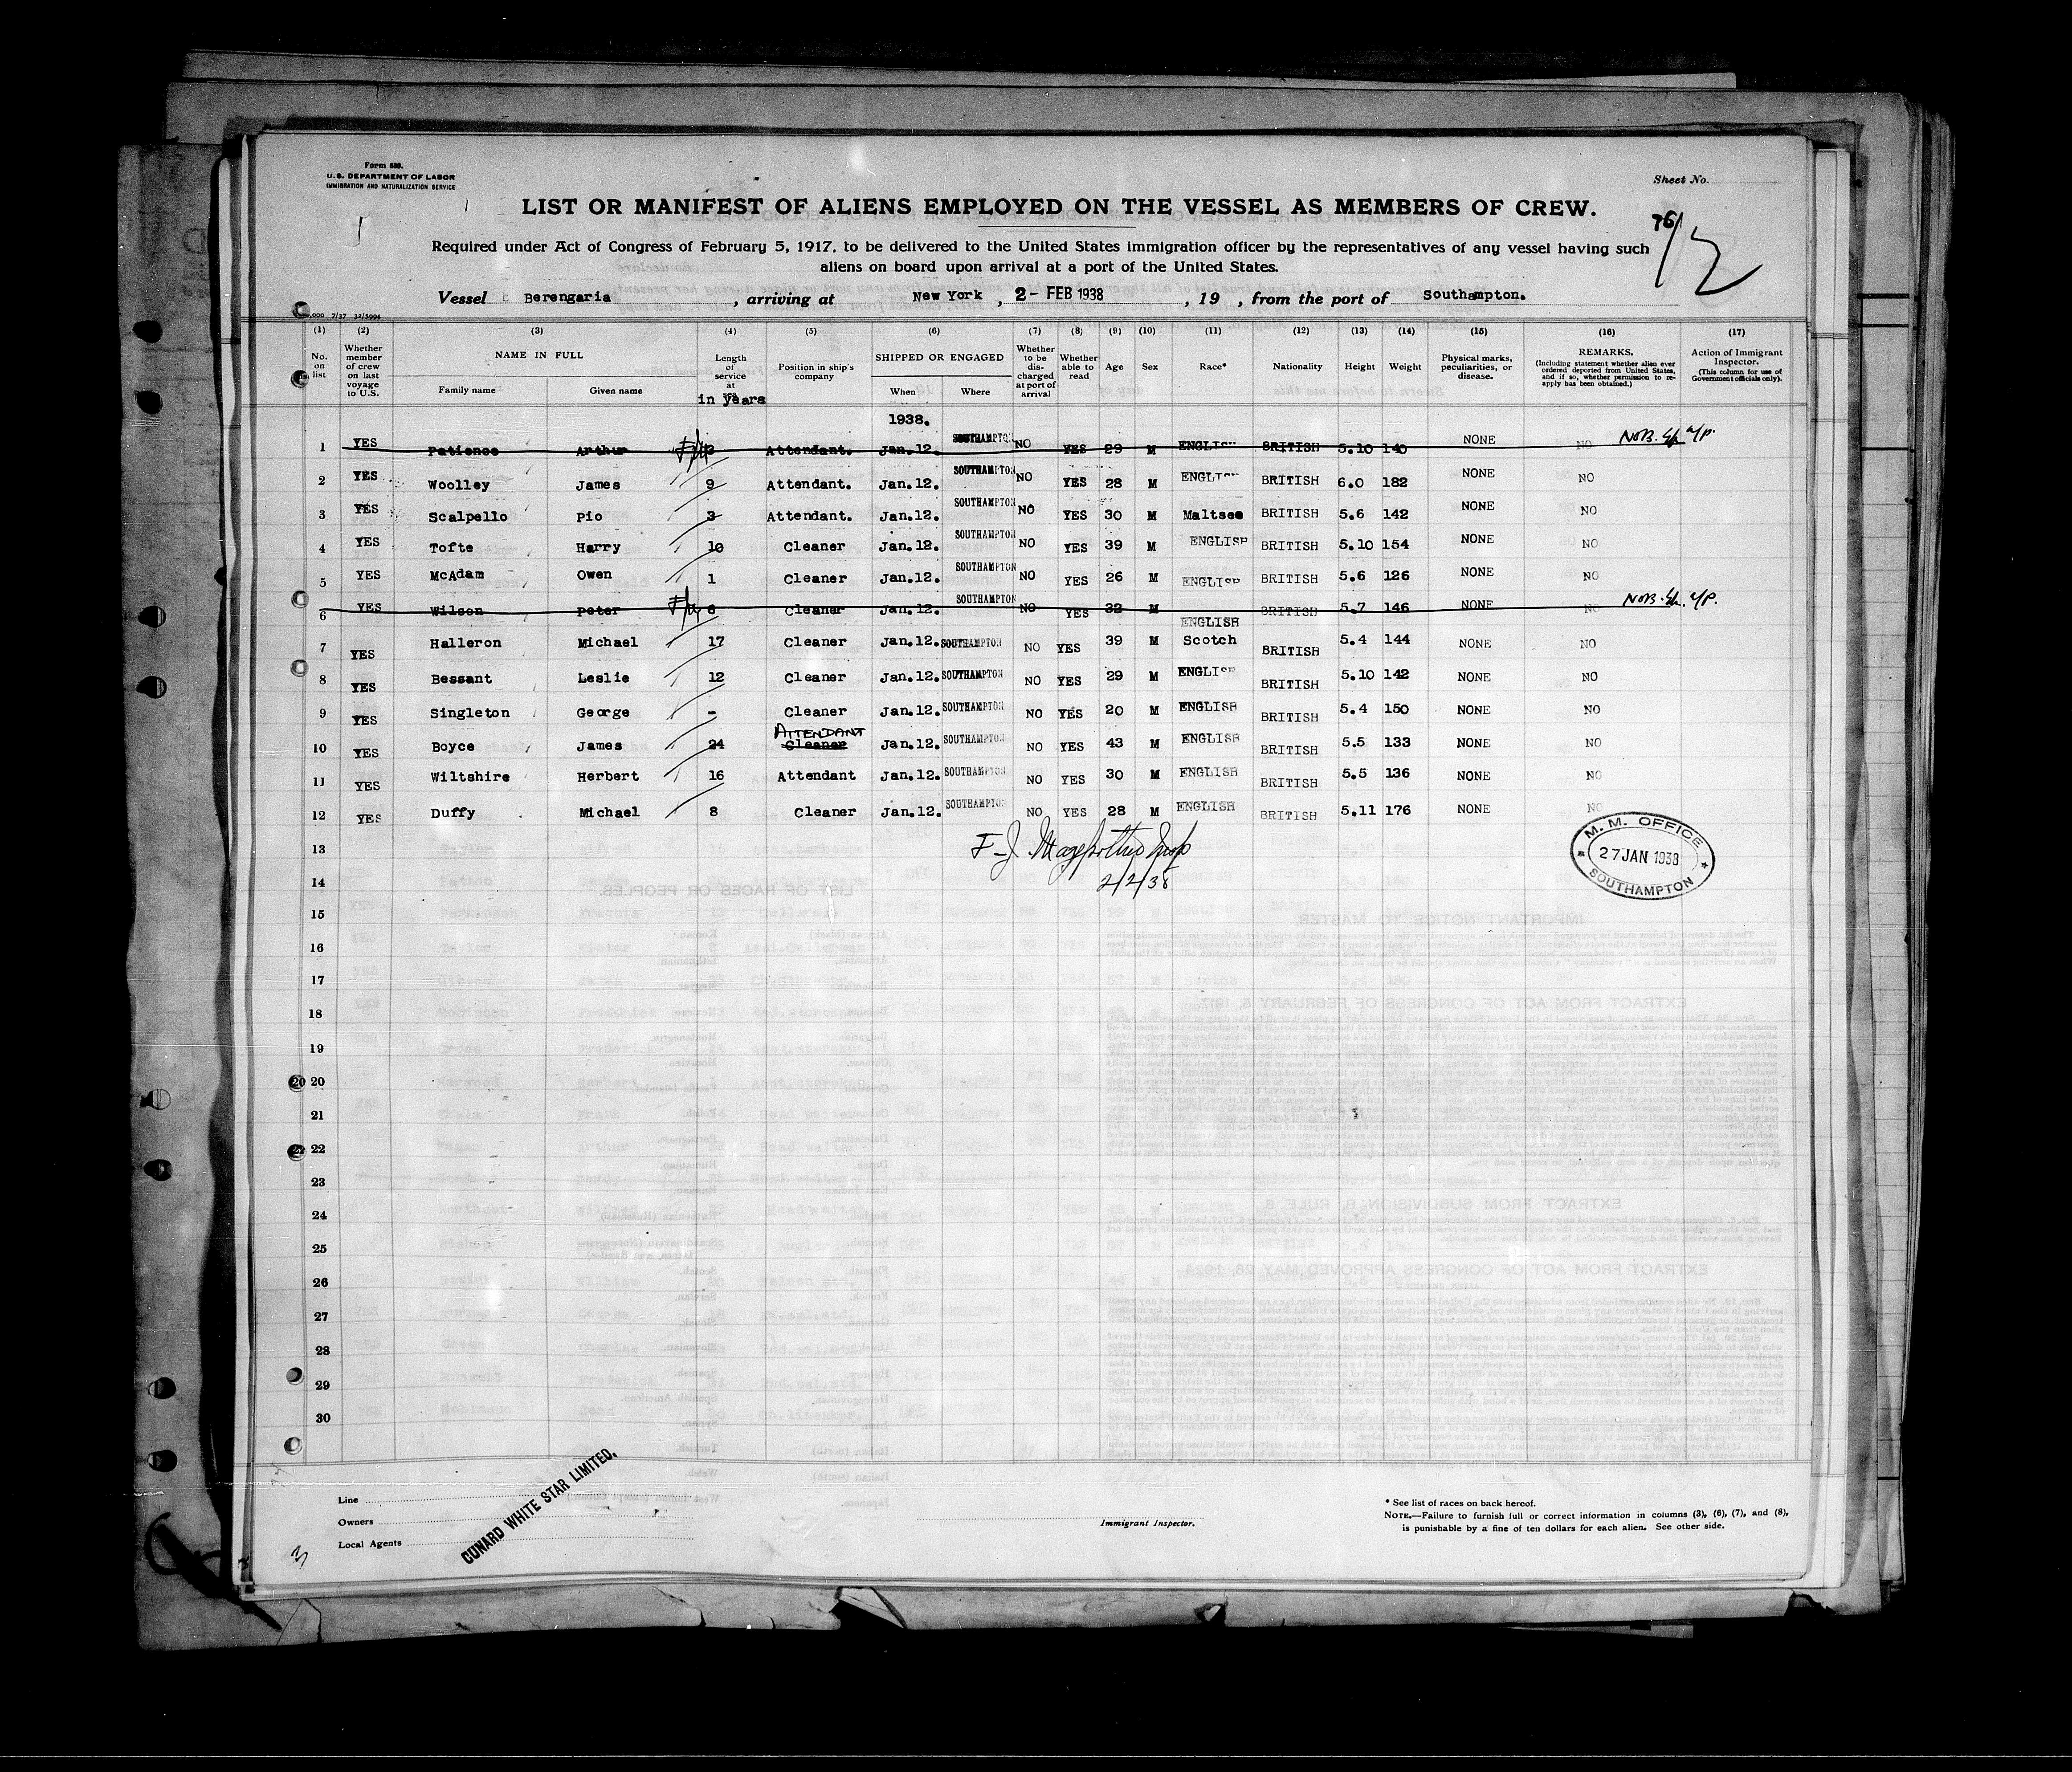 Form 680.
U.S. DEPARTMENT OF LABOR
IMMIGRATION AND NATURALIZATION SERVICE
Sheet No.
LIST OR MANIFEST OF ALIENS EMPLOYED ON THE VESSEL AS MEMBERS OF CREW.
76/
Required under Act of Congress of February 5, 1917, to be delivered to the United States immigration officer by the representatives of any vessel having such
aliens on board upon arrival at a port of the United States.
12
Vessel Berengaria, arriving at New York, 2- FEB 1938, 19 , from the port of Southampton.
(1) (2) (3) (4) (5) (6) (7) (8) (9) (10) (11) (12) (13) (14) (15) (16) (17)
No. on list
Whether member of crew on last voyage to U.S.
NAME IN FULL
Family name Given name
Length of service at sea
in years
Position in ship's company
SHIPPED OR ENGAGED
When Where
Whether to be discharged at port of arrival
Whether able to read
Age
Sex
Race*
Nationality
Height
Weight
Physical marks, peculiarities, or disease.
REMARKS.
(Including statement whether alien ever ordered deported from United States, and if so, whether permission to re-apply has been obtained.)
Action of Immigrant Inspector.
(This column for use of Government officials only).
1938.
1 YES Patience Arthur Attendant. Jan.12. SOUTHAMPTON NO YES 29 M ENGLISH BRITISH 5.10 140 NONE NO
2 YES Woolley James 9 Attendant. Jan.12. SOUTHAMPTON NO YES 28 M ENGLISH BRITISH 6.0 182 NONE NO
3 YES Scalpello Pio 3 Attendant. Jan.12. SOUTHAMPTON NO YES 30 M Maltsee BRITISH 5.6 142 NONE NO
4 YES Tofte Harry 10 Cleaner Jan.12. SOUTHAMPTON NO YES 39 M ENGLISH BRITISH 5.10 154 NONE NO
5 YES McAdam Owen 1 Cleaner Jan.12. SOUTHAMPTON NO YES 26 M ENGLISH BRITISH 5.6 126 NONE NO
6 YES Wilson Peter 6 Cleaner Jan.12. SOUTHAMPTON NO YES 32 M ENGLISH BRITISH 5.7 146 NONE NO
7 YES Halleron Michael 17 Cleaner Jan.12. SOUTHAMPTON NO YES 39 M Scotch BRITISH 5.4 144 NONE NO
8 YES Bessant Leslie 12 Cleaner Jan.12. SOUTHAMPTON NO YES 29 M ENGLISH BRITISH 5.10 142 NONE NO
9 YES Singleton George - Cleaner Jan.12. SOUTHAMPTON NO YES 20 M ENGLISH BRITISH 5.4 150 NONE NO
ATTENDANT
10 YES Boyce James 24 Cleaner Jan.12. SOUTHAMPTON NO YES 43 M ENGLISH BRITISH 5.5 133 NONE NO
11 YES Wiltshire Herbert 16 Attendant Jan.12. SOUTHAMPTON NO YES 30 M ENGLISH BRITISH 5.5 136 NONE NO
12 YES Duffy Michael 8 Cleaner Jan.12. SOUTHAMPTON NO YES 28 M ENGLISH BRITISH 5.11 176 NONE NO
13
2/2/38
M.M. OFFICE
27 JAN 1938
SOUTHAMPTON
14
15
16
17
18
19
20 20
21
22 22
23
24
25
26
27
28
29
30
Line
Owners
Local Agents
CUNARD WHITE STAR LIMITED.
Immigrant Inspector.
* See list of races on back hereof.
NOTE.—Failure to furnish full or correct information in columns (3), (6), (7), and (8),
is punishable by a fine of ten dollars for each alien. See other side.